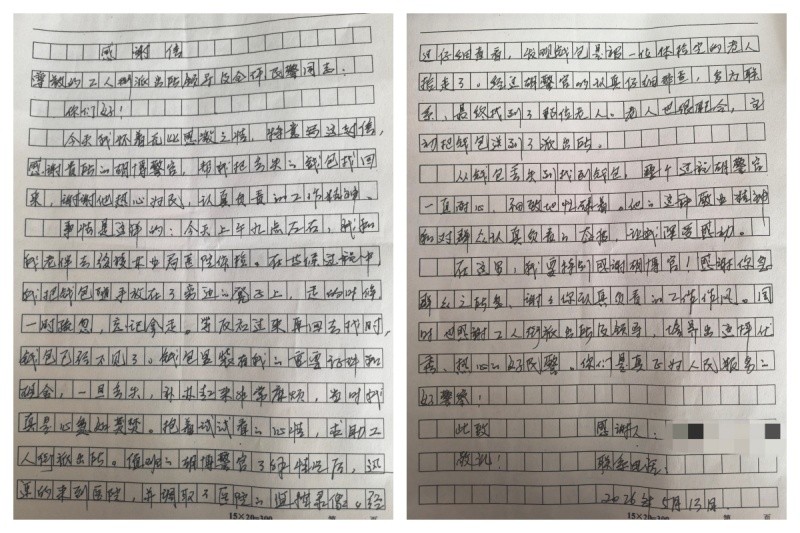 感谢信
尊敬的工人街派出所领导及全体民警同志:
你们好!
今天我怀着无比感激之情,特意写这封信,
感谢贵所的胡博警官,帮我把丢失的钱包找回
来,谢谢他热心为民,认真负责的工作精神。
事情是这样的:今天上午九点左右,我和
我老伴去给技术业局医院体检。在等候过程中
我把钱包随手放在了旁边的凳子上,走的时候
一时疏忽,忘记拿走。等反应过来再回去找时,
钱包已经不见了。钱包里装有我的重要证件和
现金,一旦丢失,补办起来非常麻烦,当时我
真是心急如焚。抱着试试看的心情,求助工
人街派出所。值班的胡博警官了解情况后,迅
速的来到医院,并调取了医院的监控录像。经
过仔细查看,发现钱包是被一位体检完的老人
捡走了。经过胡警官的认真仔细排查,多方联
系,最终找到了那位老人。老人也很配合,主
动把钱包送到了派出所。
从钱包丢失到找到钱包,整个过程胡警官
一直耐心,细致地忙碌着。他的这种敬业精神
和对群众认真负责的态度,让我深受感动。
在这里,我要特别感谢胡博警官!感谢你急
群众之所急,谢谢你认真负责的工作作风。同
时也感谢工人街派出所及领导,培养出这样优
秀、热心的好民警。你们是真正为人民服务的
好警察!
此致 感谢人:
敬礼! 联系电话:
2026年5月13日
15×20=300 第 页
15×20=300 第 页